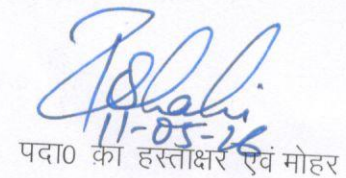 11-05-26
पदा0 का हस्ताक्षर एवं मोहर